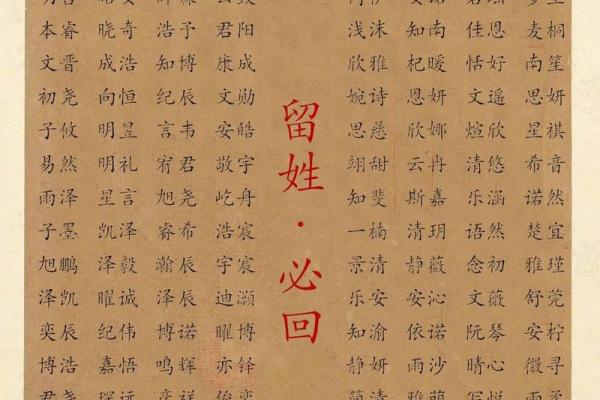 本睿 晓奇 浩予 君阳 浅沫 安南 佳恩 麦桐
文晋 成浩 知博 康成 欣雅 知暖 恬好 南笙
初尧 向恒 纪辰 文勋 婉诗 恩妍 文遥 思妍
子攸 明昱 言韦 安皓 思慈 欣娜 煊欣 星祺
易然 明礼 宥君 敬宇 翊甜 云冉 清悠 希音
雨泽 星言 旭尧 屹舟 知斐 斯嘉 乐涵 诺然
子墨 凯泽 睿希 浩宸 一楠 清玥 语然 楚宜
旭鹏 泽毅 瀚辰 宇宸 景清 静薇 念初 雅瑾
泽凯 曜诚 泽辰 迪灏 乐安 安沁 文薇 舒莞
奕辰 纪伟 博诺 曜博 知渝 依诺 阮琴 安柠
博浩 嘉悟 鸣辉 亦铎 静妍 雨沙 晴心 微寻
留姓·必回